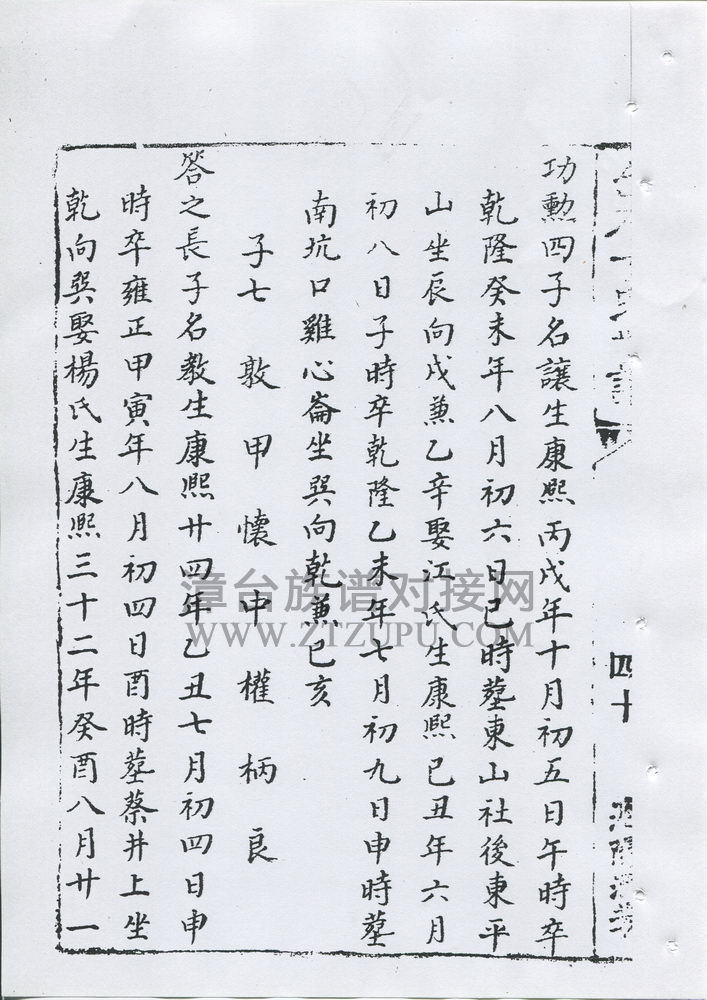 四十
功勲四子名讓生康熙丙戌年十月初五日午時卒
乾隆癸未年八月初六日巳時墓東山社後東平
山坐辰向戌兼乙辛娶江氏生康熙己丑年六月
初八日子時卒乾隆乙未年七月初九日申時墓
南坑口雞心崙坐巽向乾兼巳亥
子七 敦 甲 懷 申 權 柄 良
答之長子名教生康熙廿四年乙丑七月初四日申
時卒雍正甲寅年八月初四日酉時墓蔡井上坐
乾向巽娶楊氏生康熙三十二年癸酉八月廿一
漳台族谱对接网
WWW.ZTZUPU.COM